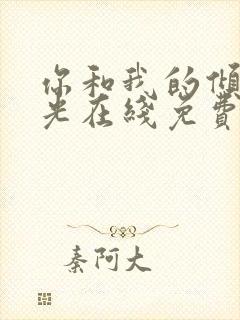 你和我的傾
光在綫免費
秦阿大